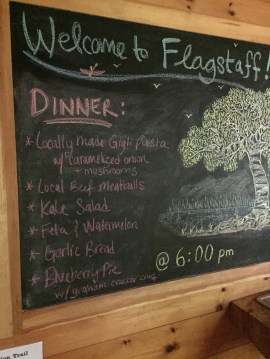 Welcome to Flagstaff!
DINNER:
* Locally made Gigli Pasta
w/ caramelized onion
+ mushrooms
* Local Beef Meatballs
* Kale Salad
* Feta & Watermelon
* Garlic Bread
* Blueberry Pie
w/ graham cracker crust
@ 6:00 pm
Trail